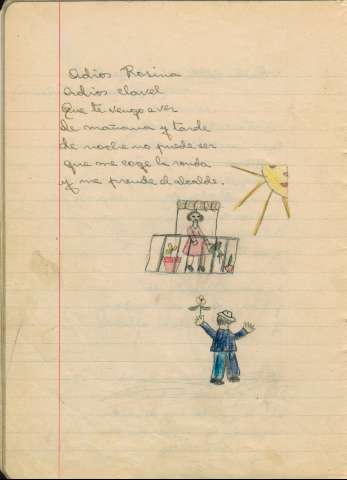 Adios Rosina
Adios clavel
Que te vengo a ver
De mañana y tarde
de noche no puede ser
que me coge la ronda
y me prende el alcalde.